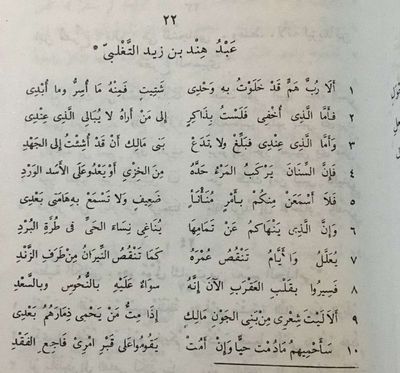 ٢٢
عَبْدُ هِنْد بن زيد التَّغْلبيّ *
١ ألا رُبَّ هَمٍّ قَدْ خَلَوْتُ به وَحْدِى شَتِيتٍ فَمِنْهُ ما أُسِرُّ وما أُبْدِى
٢ فَأمّا الَّذِى أُخْفِى فَلَسْتُ بذَاكِرٍ إلى مَنْ أرَاهُ لا يُبَالِى الَّذِى عِنْدِى
٣ وَأمَّا الَّذِى عِنْدِى فَبلِّغْ ولا تَدَعْ بنى مَالِكٍ أنْ قَدْ أُشِئْتُ إلى الجَهْدِ
٤ فَإنَّ السِّنَانَ يَرْكَبُ المَرْءُ حَدَّهُ مِنَ الخِزْىِ أوْ يَعْدُو عَلَى الأسَدِ الوَرْدِ
٥ فَلاَ أسْمَعَنْ مِنكُمْ بأمْرٍ مُنَأْنَأٍ ضَعِيفٍ وَلا تَسْمَعْ بِه هَامَتى بَعْدِى
٦ وَإنَّ الَّذِى يَنْهَاكُمُ عَنْ تَمَامِهَا يُنَاغِى نِسَاءَ الحَىِّ فى طُرَّةِ البُرْدِ
٧ يُعَلَّلُ وَأيَّامٌ تَنَقَّصُ عُمْرَهُ كمَا تَنْقُصُ النِّيرَانُ مِنْ طَرَفِ الزَّنْدِ
٨ فَسِيرُوا بقَلْبِ العَقْرَبِ الآنَ إنَّهُ سواءٌ عَلَيْهِ بالنُّحُوسِ وبالسَّعْدِ
٩ ألاَ لَيْتَ شِعْرِى مِنْ بَنِى الجَوْنِ مَالِكٍ إذَا مِتُّ مَنْ يَحْمِى ذِمَارَهُمُ بَعْدِى
١٠ سَأحْمِيهِمُ مَا دُمْتُ حَيًّا وَإنْ أمُتْ يَقُومُوا عَلى قَبْرِ امْرِئٍ فَاجِعِ الفَقْدِ